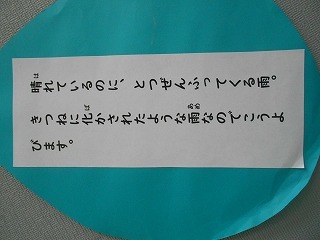 晴れているのに、とつぜんふってくる雨。
きつねに化かされたような雨なのでこうよ
びます。